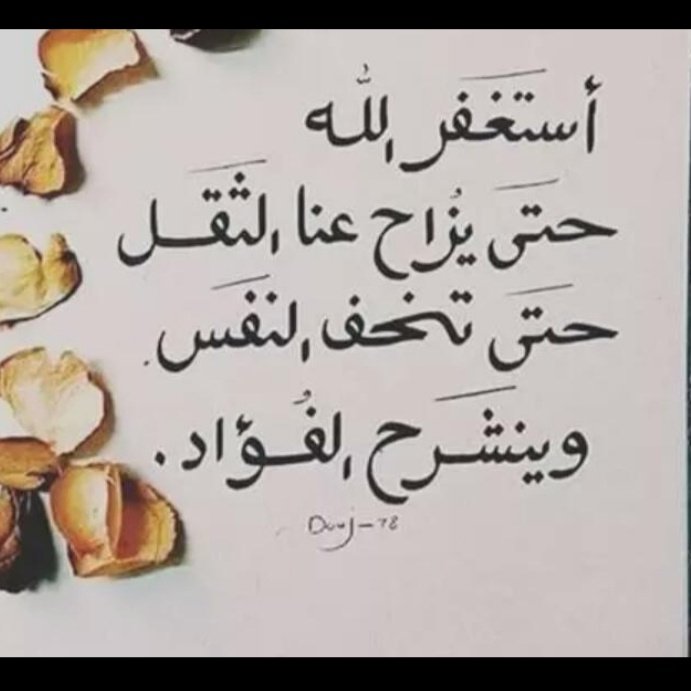 أستغفر الله
حتىَ يُزاح عنا الثَقل
حتىَ تخف النفَس
وينشَرح الفُؤاد.